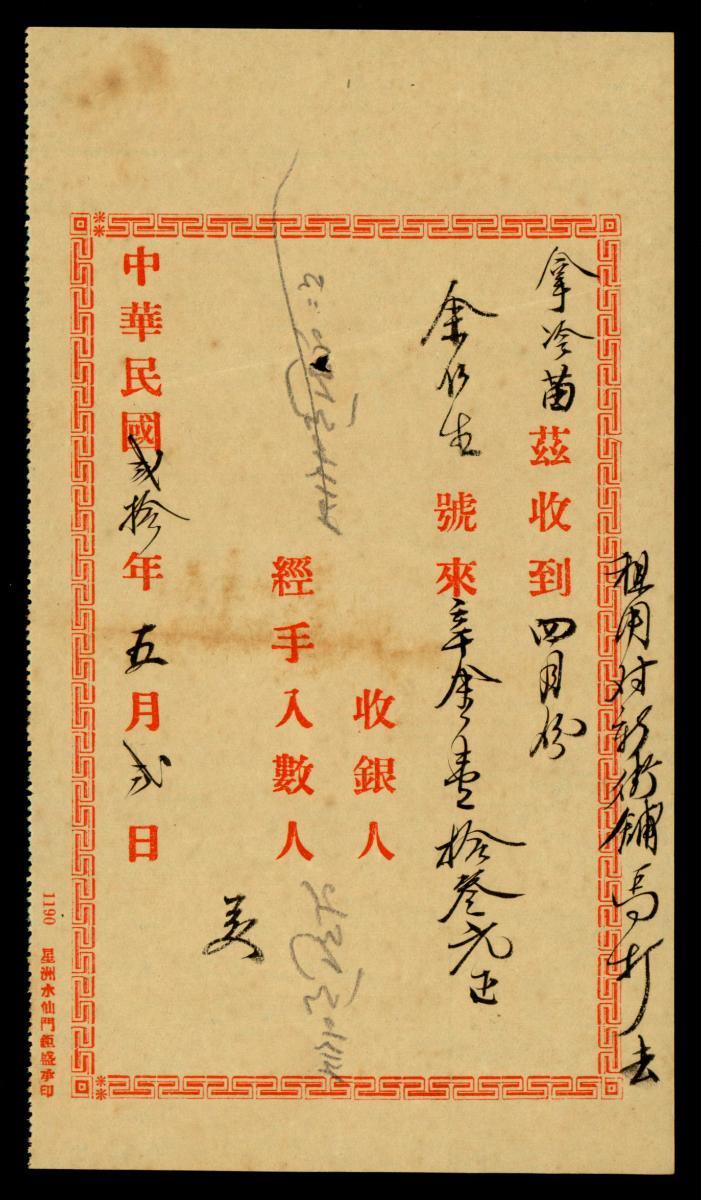 租用对新街鋪馬打去
拿冷苗茲收到四月份
余仁生號來辛金壹拾叁元正
收銀人
經手入數人
美
中華民國貳拾年五月貳日
1190 星洲水仙門恆盛承印